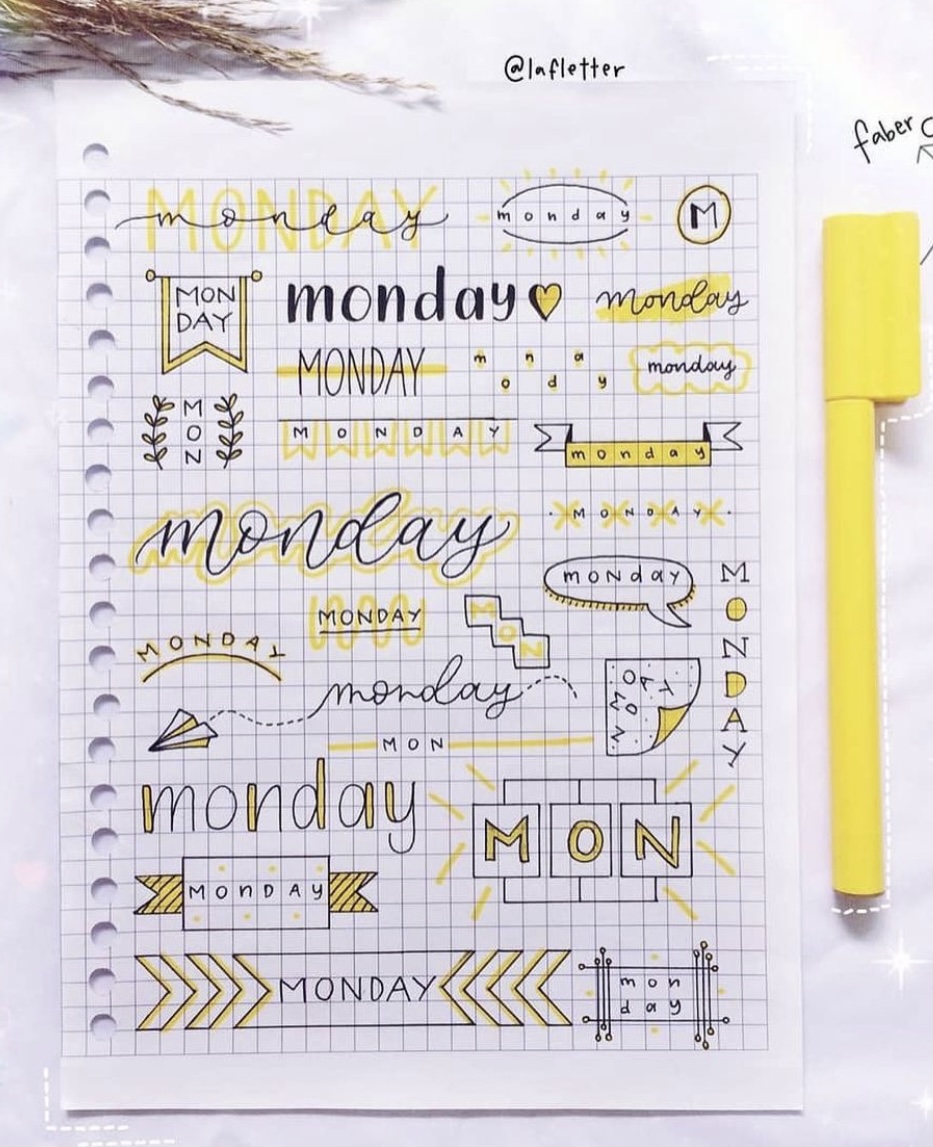 @lafletter
faber
MONDAY
monday
monday
M
MON
DAY
monday
monday
MONDAY
monday
monday
MON
MONDAY
monday
monday
MONDAY
monDay
MONDAY
MONDAY
MON
MONDAY
monday
MONDAY
MON
monday
MON
MonDAy
MONDAY
mon
day